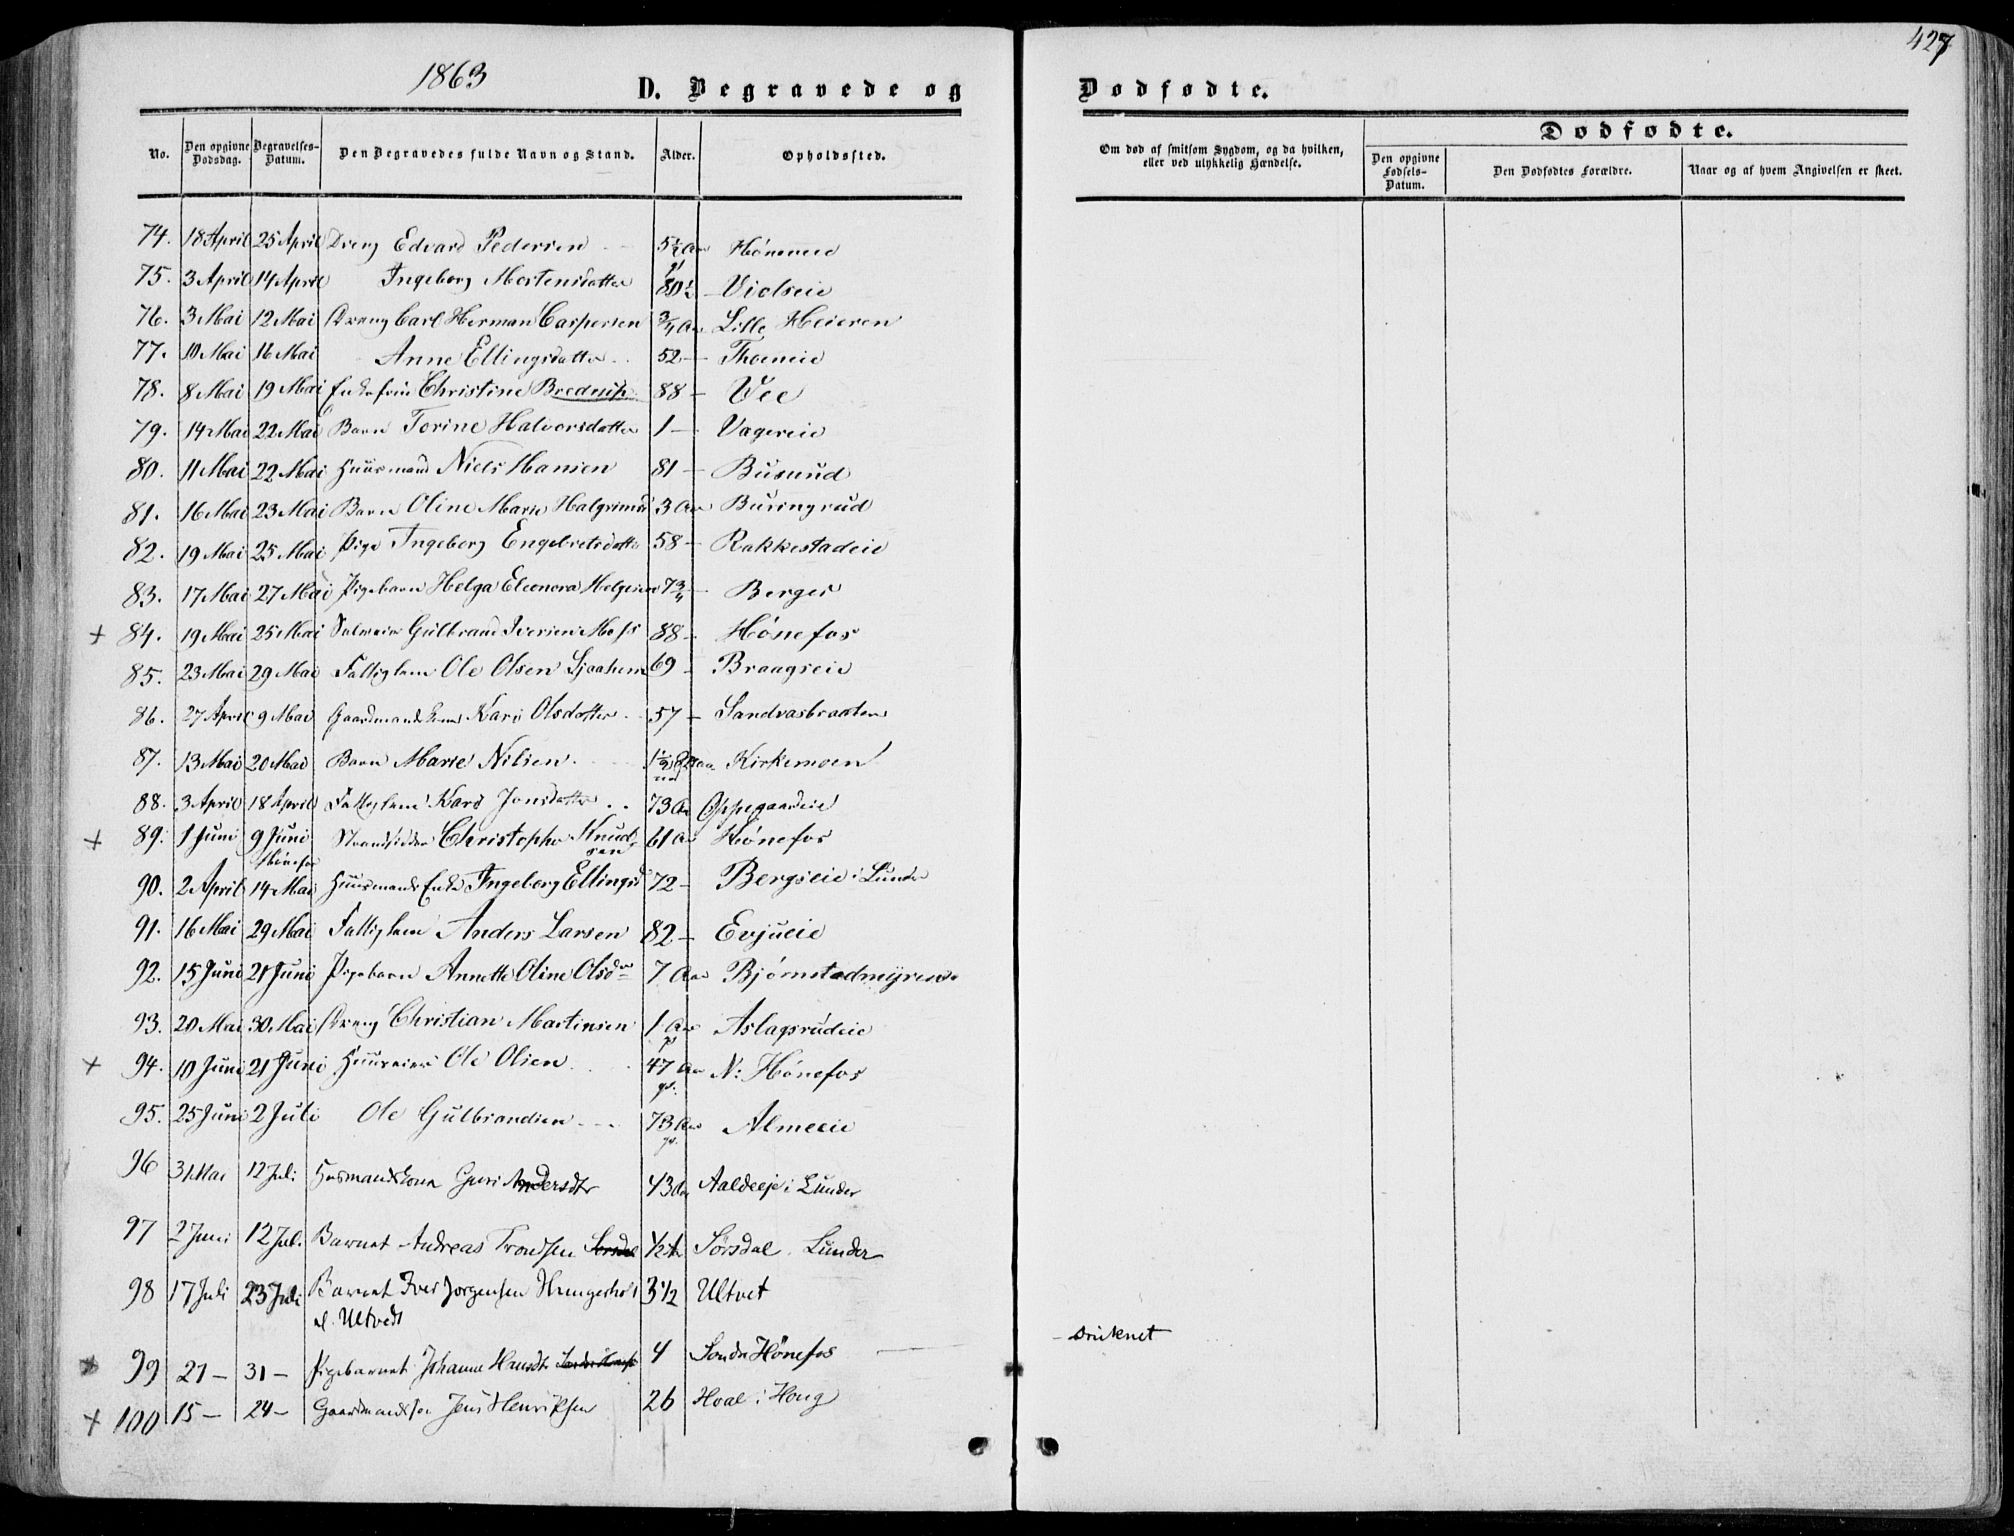 1863
427
D. Begravede og Dodfodte.
Dodfodte.
No. Den opgivne Dodsdag. Begravelses-Datum. Den Begravedes fulde Navn og Stand. Alder. Opholdssted. Om dod af smitsom Sygdom, og da hvilken, eller ved ulykkelig Hændelse. Den opgivne Fodsels-Datum. Den Dodfodtes Forældre. Naar og af hvem Angivelsen er skeet.
74. 18 April 25 April Dreng Edvard Pedersen 5½ Aar Hóneneie
75. 3 April 14 April Ingeborg Mortensdatter 80½ Violseie
76. 3 Mai 12 Mai Dreng Carl Herman Caspersen ¾ Aar Lille Heieren
77. 10 Mai 16 Mai Anne Ellingsdatter 52 –
78. 8 Mai 19 Mai Enkefrue Christine Bredrup 88 – Vee
79. 14 Mai 22 Mai Barn Torine Halvorsdatter 1 – Vagereie
80. 11 Mai 22 Mai Huusmand Niels Hansen 81 – Busund
81. 16 Mai 23 Mai Barn Oline Marie Halgrimsd 3 Aar Busingrud
82. 19 Mai 25 Mai Pige Ingeborg Engebretsdatter 58 – Rakkestadeie
83. 17 Mai 27 Mai Pigebarn Helga Eleonora Helgesen 7¾ – Berger
+ 84. 19 Mai 25 Mai Gulbrand Iversen Moss 88 – Hónefos
85. 23 Mai 29 Mai Fattiglem Ole Olsen 69 – Braagseie
86. 27 April 9 Mai Gaardmandskone Kari Olsdatter 57 – Sandvasbraaten
87. 13 Mai 20 Mai Barn Marie Nilsen. 1½ Kirkemoen
88. 3 April 18 April Fattiglem Kari Jonsdatter 73 Aar Oppegaardeie
+ 89. 1 Juni 9 Juni Strandsidder Christopher Knud-
Hónefos sen 61 Aar Hónefos
90. 2 April 14 Mai Huusmands Enke Ingeborg Ellingsd 72 – Bergseie i Lunder
91. 16 Mai 29 Mai Fattiglem Anders Larsen 82 – Evjueie
92. 15 Juni 21 Juni Pigebarn Annette Oline Olsdr 7 Aar Bjórnstadmyren
93. 20 Mai 30 Mai Dreng Christian Martinsen 1 Aar Aslagsrudeie
+ 94. 10 Juni 21 Juni Huuseier Ole Olsen 47 Aar N: Hónefos
95. 25 Juni 2 Juli Ole Gulbrandsen 73 Aar Almeeie
96 31 Mai 12 Juli Husmandskone Guri Andersdtr 43 Aar Aaldeeje i Lunder
97 2 Juni 12 Jul. Barnet Andreas Trondsen Sørsdal ½ A Sørsdal. Lunder
98 17 Juli 23 Juli Barnet Iver Jorgensen Hungerholt 3½ Ultvet
el. Ultvedt
+ 99 21 – 31 – Pigebarnet Johanne Hansdtr 4 Sondre Hönefos – druknet
+ 100 15 – 24 – Gaardmandssøn Jens Henriksen 26 Hval i Houg